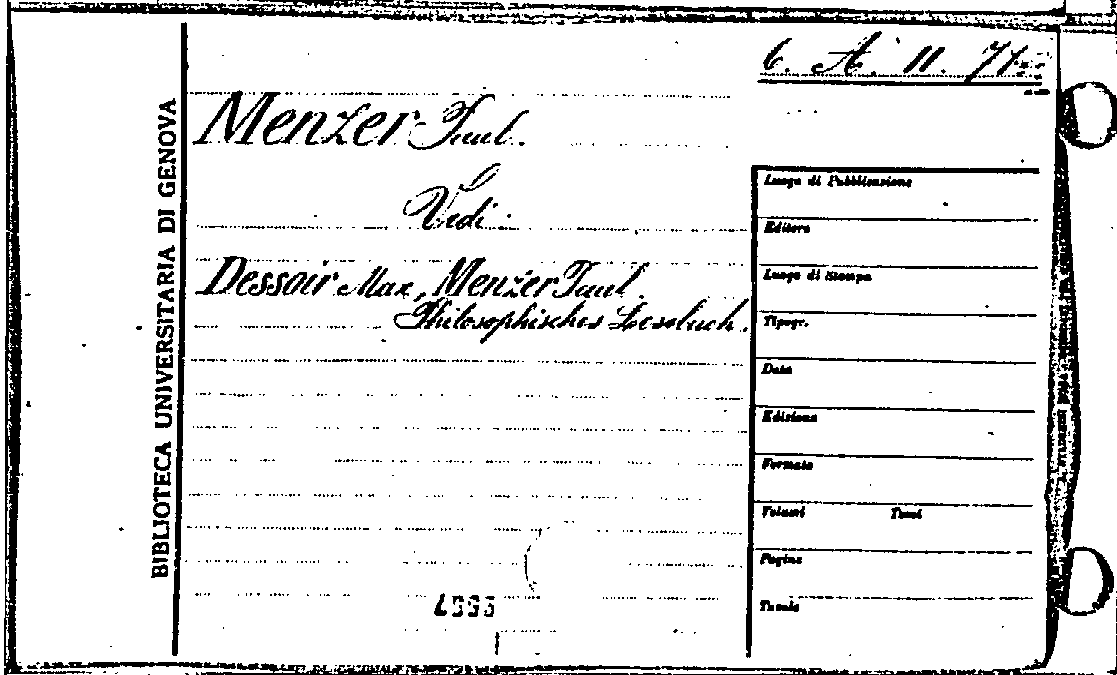 6. A. 11. 71
BIBLIOTECA UNIVERSITARIA DI GENOVA
Menzer Paul.
Vedi:
Dessoir Max, Menzer Paul.
Philosophisches Lesebuch.
Luogo di Pubblicazione
Editore
Luogo di Stampa
Tipogr.
Data
Edizione
Formato
Volumi Tomi
Pagine
Tavole